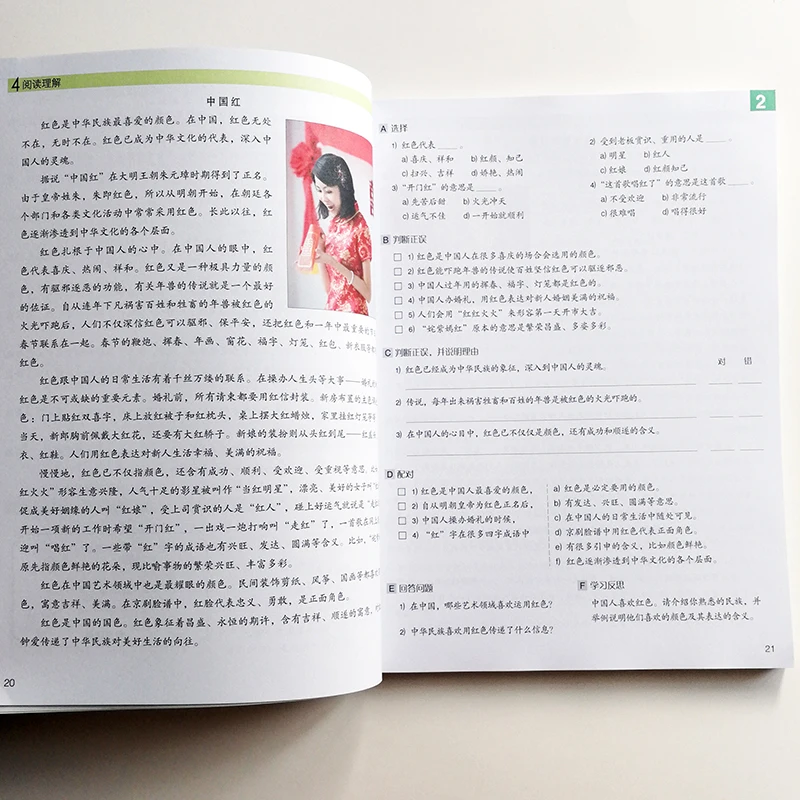 4 阅读理解
中国红
红色是中华民族最喜爱的颜色。在中国，红色无处
不在，无时不在。红色已成为中华文化的代表，深入中
国人的灵魂。
据说“中国红”在大明王朝朱元璋时期得到了正名。
由于皇帝姓朱，朱即红色，所以从明朝开始，在朝廷各
个部门和各类文化活动中常常采用红色。长此以往，红
色逐渐渗透到中华文化的各个层面。
红色扎根于中国人的心中。在中国人的眼中，红
色代表喜庆、热闹、祥和。红色又是一种极具力量的颜
色，有驱邪逐恶的功能，有关年兽的传说就是一个最好
的佐证。自从连年下凡祸害百姓和牲畜的年兽被红色的
火光吓跑后，人们不仅深信红色可以驱邪、保平安，还把红色和一年中最重要的节
春节联系在一起。春节的鞭炮、挥春、年画、窗花、福字、灯笼、红包、新衣服等
红色。
红色跟中国人的日常生活有着千丝万缕的联系。在操办人生头等大事——婚礼
红色是不可或缺的重要元素。婚礼前，所有请柬都要用红信封装。新房布置的主色
色：门上贴红双喜字，床上放红被子和红枕头，桌上摆大红蜡烛，家里挂红灯笼等
当天，新郎胸前佩戴大红花，还要有大红轿子。新娘的装扮则从头红到尾——红盖
衣、红鞋。人们用红色表达对新人生活幸福、美满的祝福。
慢慢地，红色已不仅指颜色，还含有成功、顺利、受欢迎、受重视等意思。
红火火”形容生意兴隆，人气十足的影星被叫作“当红明星”，漂亮、美好的女子叫
促成美好姻缘的人叫“红娘”，受上司赏识的人是“红人”，碰上好运气就说是
开始一项新的工作时希望“开门红”，一出戏一炮打响叫“走红”了，一首歌
迎叫“唱红”了。一些带“红”字的成语也有兴旺、发达、圆满等含义。比如，
原先指颜色鲜艳的花朵，现比喻事物的繁荣兴旺、丰富多彩。
红色在中国艺术领域中也是最耀眼的颜色。民间装饰剪纸、风筝、国画等都
色，寓意吉祥、美满。在京剧脸谱中，红脸代表忠义、勇敢，是正面角色。
红色是中国的国色。红色象征着昌盛、永恒的期许，含有吉祥、顺遂的寓意，
钟爱传递了中华民族对美好生活的向往。
20
2
A 选择
1) 红色代表____。
a) 喜庆、祥和 b) 红颜、知己
c) 扫兴、吉祥 d) 娇艳、热闹
2) 受到老板赏识、重用的人是____。
a) 明星 b) 红人
c) 红娘 d) 红颜知己
3) “开门红”的意思是____。
a) 先苦后甜 b) 火光冲天
c) 运气不佳 d) 一开始就顺利
4) “这首歌唱红了”的意思是这首歌____。
a) 不受欢迎 b) 非常流行
c) 很难唱 d) 唱得很好
B 判断正误
1) 红色是中国人在很多喜庆的场合会选用的颜色。
2) 红色能吓跑年兽的传说使百姓坚信红色可以驱逐邪恶。
3) 中国人过年用的挥春、福字、灯笼都是红色的。
4) 中国人办婚礼，用红色表达对新人婚姻美满的祝福。
5) 人们会用“红红火火”来形容第一天开市大吉。
6) “姹紫嫣红”原本的意思是繁荣昌盛、多姿多彩。
C 判断正误，并说明理由
对 错
1) 红色已经成为中华民族的象征，深入到中国人的灵魂。
2) 传说，每年出来祸害牲畜和百姓的年兽是被红色的火光吓跑的。
3) 在中国人的心目中，红色已不仅仅是颜色，还有成功和顺遂的含义。
D 配对
1) 红色是中国人最喜爱的颜色，
2) 自从明朝皇帝为红色正名后，
3) 中国人操办婚礼的时候，
4) “红”字在很多四字成语中
a) 红色是必定要用的颜色。
b) 有发达、兴旺、圆满等意思。
c) 在中国人的日常生活中随处可见。
d) 京剧脸谱中用红色代表正面角色。
e) 有很多引申的含义，比如颜色鲜艳。
f) 红色逐渐渗透到中华文化的各个层面。
E 回答问题
1) 在中国，哪些艺术领域喜欢运用红色？
2) 中华民族喜欢用红色传递了什么信息？
F 学习反思
中国人喜欢红色。请介绍你熟悉的民族，并
举例说明他们喜欢的颜色及其表达的含义。
21